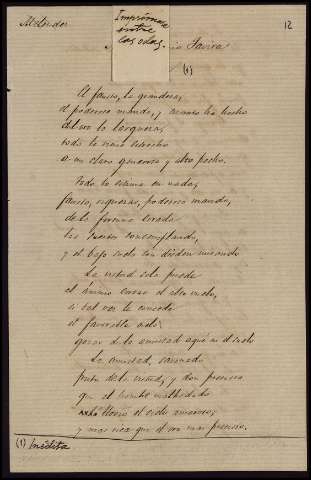 Melendez
Imprímase
entre
las odas,
12
Tavira
(1)
El fausto, la grandeza,
el poderoso mando, y cuanto ha hecho
del oro la largueza,
todo te viene estrecho
a un claro generoso y alto pecho.
Todo lo estima en nada,
fausto, riquezas, poderoso mando,
de la fortuna errada
las suertes contemplando,
y el bajo suelo con desden mirando
La virtud sola puede
el ánimo es el alto cielo,
a tal vez te concede
el favorable cielo
gozar de la amistad aquí en el suelo
La amistad, sazonado
fruto de la virtud, y don precioso
que al hombre malhadado
el cielo
y mas rica que el oro mas precioso.
(1) Inédita